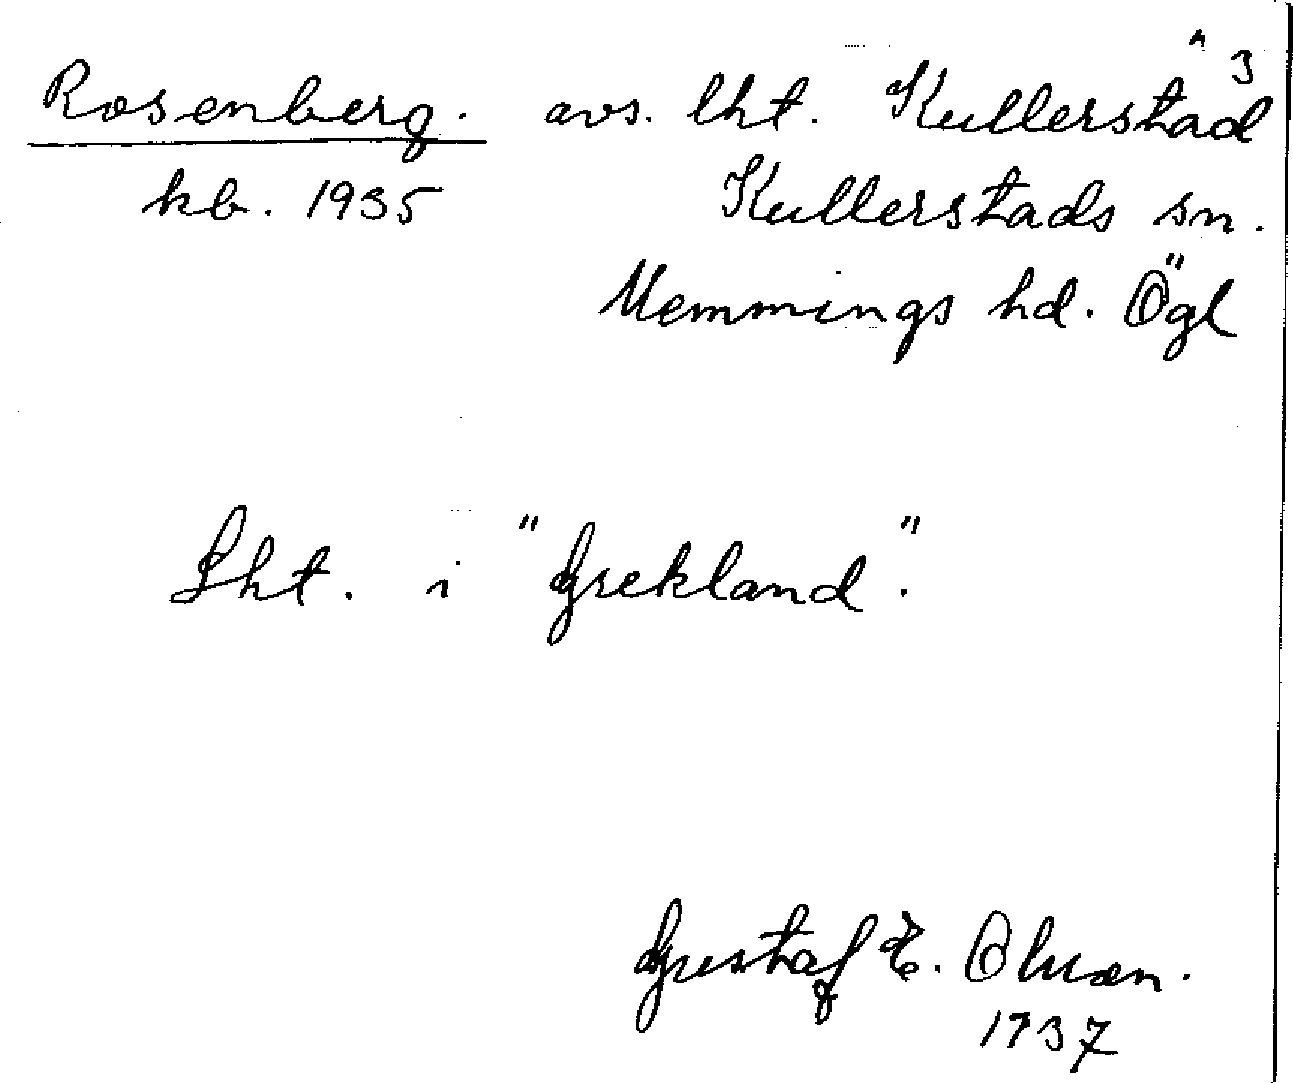 Rosenberg. avs. lht. Kullerstad 3
kb. 1935 Kullerstads sn.
Memmings hd. Ögl
Lht. i "Grekland".
Gustaf E. Olsson.
1937